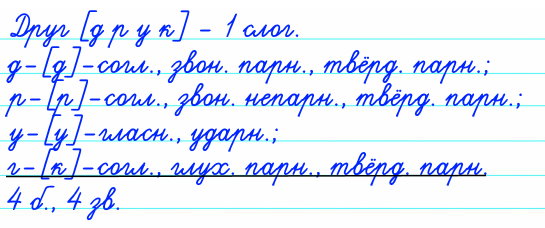 Друг [д р у к] – 1 слог.
д – [д] – согл., звон. парн., твёрд. парн.;
р – [р] – согл., звон. непарн., твёрд. парн.;
у – [у] – гласн., ударн.;
г – [к] – согл., глух. парн., твёрд. парн.
4 б., 4 зв.